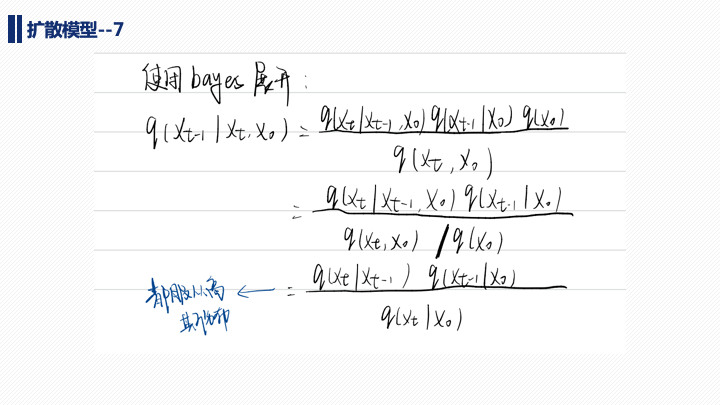 扩散模型--7
使用 bayes 展开:
q(x_{t-1} | x_t, x_0) = q(x_t | x_{t-1}, x_0) q(x_{t-1} | x_0) q(x_0) / q(x_t, x_0)
= q(x_t | x_{t-1}, x_0) q(x_{t-1} | x_0) / q(x_t, x_0) / q(x_0)
都服从高 ← = q(x_t | x_{t-1}) q(x_{t-1} | x_0) / q(x_t | x_0)
其分布